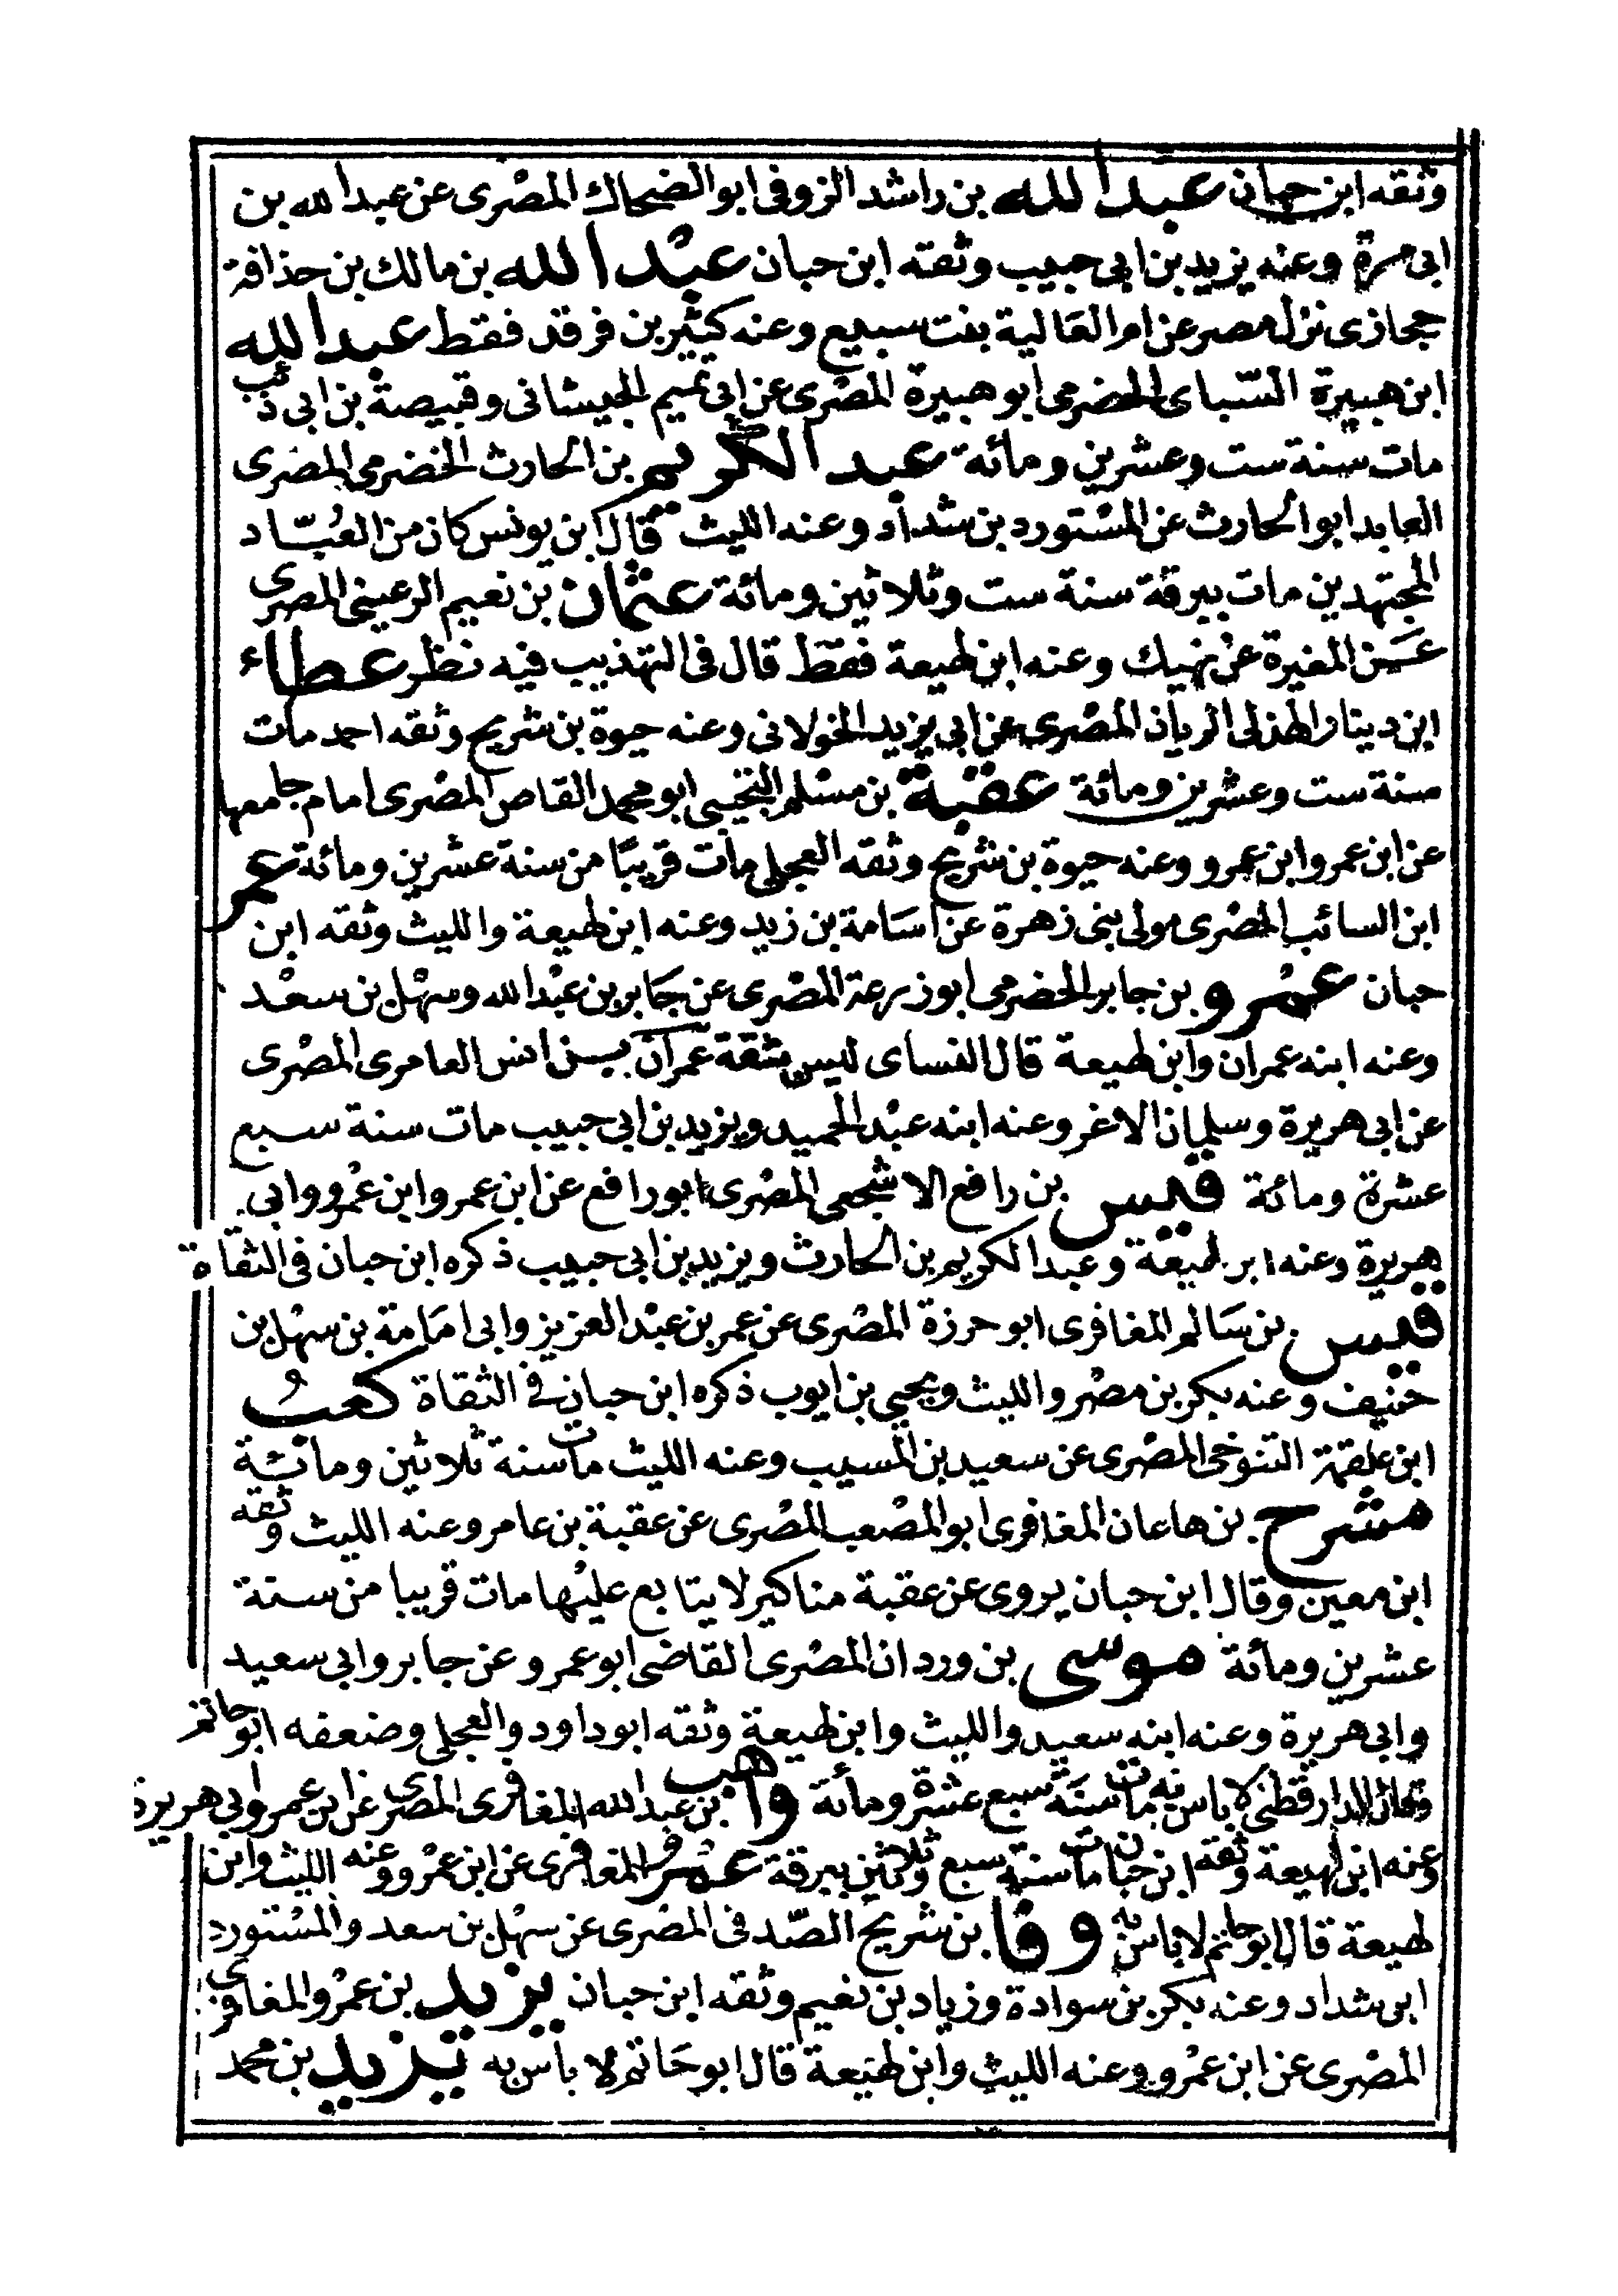 وثقه ابن حبان عبد الله بن راشد الزوفى ابو الضحاك المصرى عن عبد الله بن
ابى مرة وعنه يزيد بن ابى حبيب وثقه ابن حبان عبد الله بن مالك بن حذافة
حجازى نزل مصر عن ام العالية بنت سبيع وعنه كثير بن فرقد فقط عبد الله
ابن هبيرة السباى الحضرمى ابو هبيرة المصرى عن ابى تميم الجيشانى وقبيصة بن ابى ذئب
مات سنة ست وعشرين ومائة عبد الكريم بن الحارث الحضرمى المصرى
العابد ابو الحارث عن المستورد بن شداد وعنه الليث قال ابن يونس كان من العباد
المجتهدين مات ببرقة سنة ست وثلاثين ومائة عثمان بن نعيم الرعينى المصرى
عن المغيرة عن نهيك وعنه ابن لهيعة فقط قال فى التهذيب فيه نظر عطاء
ابن دينار الهذلى الريان المصرى عن ابى يزيد الخولانى وعنه حيوة بن شريح وثقه احمد مات
سنة ست وعشرين ومائة عقبة بن مسلم التجيبى ابو محمد القاص المصرى امام جامعها
عن ابن عمر وابن عمرو وعنه حيوة بن شريح وثقه العجلى مات قريبا من سنة عشرين ومائة عمر
ابن السائب المصرى مولى بنى زهرة عن اسامة بن زيد وعنه ابن لهيعة والليث وثقه ابن
حبان عمرو بن جابر الحضرمى ابو زرعة المصرى عن جابر بن عبد الله وسهل بن سعد
وعنه ابنه عمران وابن لهيعة قال النساى ليس بثقة عمران بن انس العامرى المصرى
عن ابى هريرة وسليمان الاغر وعنه ابنه عبد الحميد ويزيد بن ابى حبيب مات سنة سبع
عشرة ومائة قيس بن رافع الاشجعى المصرى ابو رافع عن ابن عمر وابن عمرو وابى
هريرة وعنه ابن لهيعة وعبد الكريم بن الحارث ويزيد بن ابى حبيب ذكره ابن حبان فى الثقاة
قيس بن سالم المغافرى ابو حرزة المصرى عن عمر بن عبد العزيز وابى امامة بن سهل بن
حنيف وعنه بكر بن مصر والليث ويحيى بن ايوب ذكره ابن حبان فى الثقاة كعب
ابن علقمة التنوخى المصرى عن سعيد بن المسيب وعنه الليث مات سنة ثلاثين ومائة
مشرح بن هاعان المغافرى ابو المصعب المصرى عن عقبة بن عامر وعنه الليث وثقه
ابن معين وقال ابن حبان يروى عن عقبة مناكير لا يتابع عليها مات قريبا من سنة
عشرين ومائة موسى بن وردان المصرى القاضى ابو عمرو عن جابر وابى سعيد
وابى هريرة وعنه ابنه سعيد والليث وابن لهيعة وثقه ابو داود والعجلى وضعفه ابو حاتم
وقال الدارقطنى لا باس به مات سنة سبع عشرة ومائة واهب بن عبد الله المغافرى المصرى عن ابن عمر وابى هريرة
وعنه ابن لهيعة وثقه ابن حبان مات سنة سبع وثلاثين ببرقة المغافرى عن ابن عمرو وعنه الليث وابن
لهيعة قال ابو حاتم لا باس به وفا بن شريح الصدفى المصرى عن سهل بن سعد والمستورد
ابن شداد وعنه بكر بن سوادة وزياد بن نعيم وثقه ابن حبان يزيد بن عمرو المغافرى
المصرى عن ابن عمرو وعنه الليث وابن لهيعة قال ابو حاتم لا باس به يزيد بن محمد